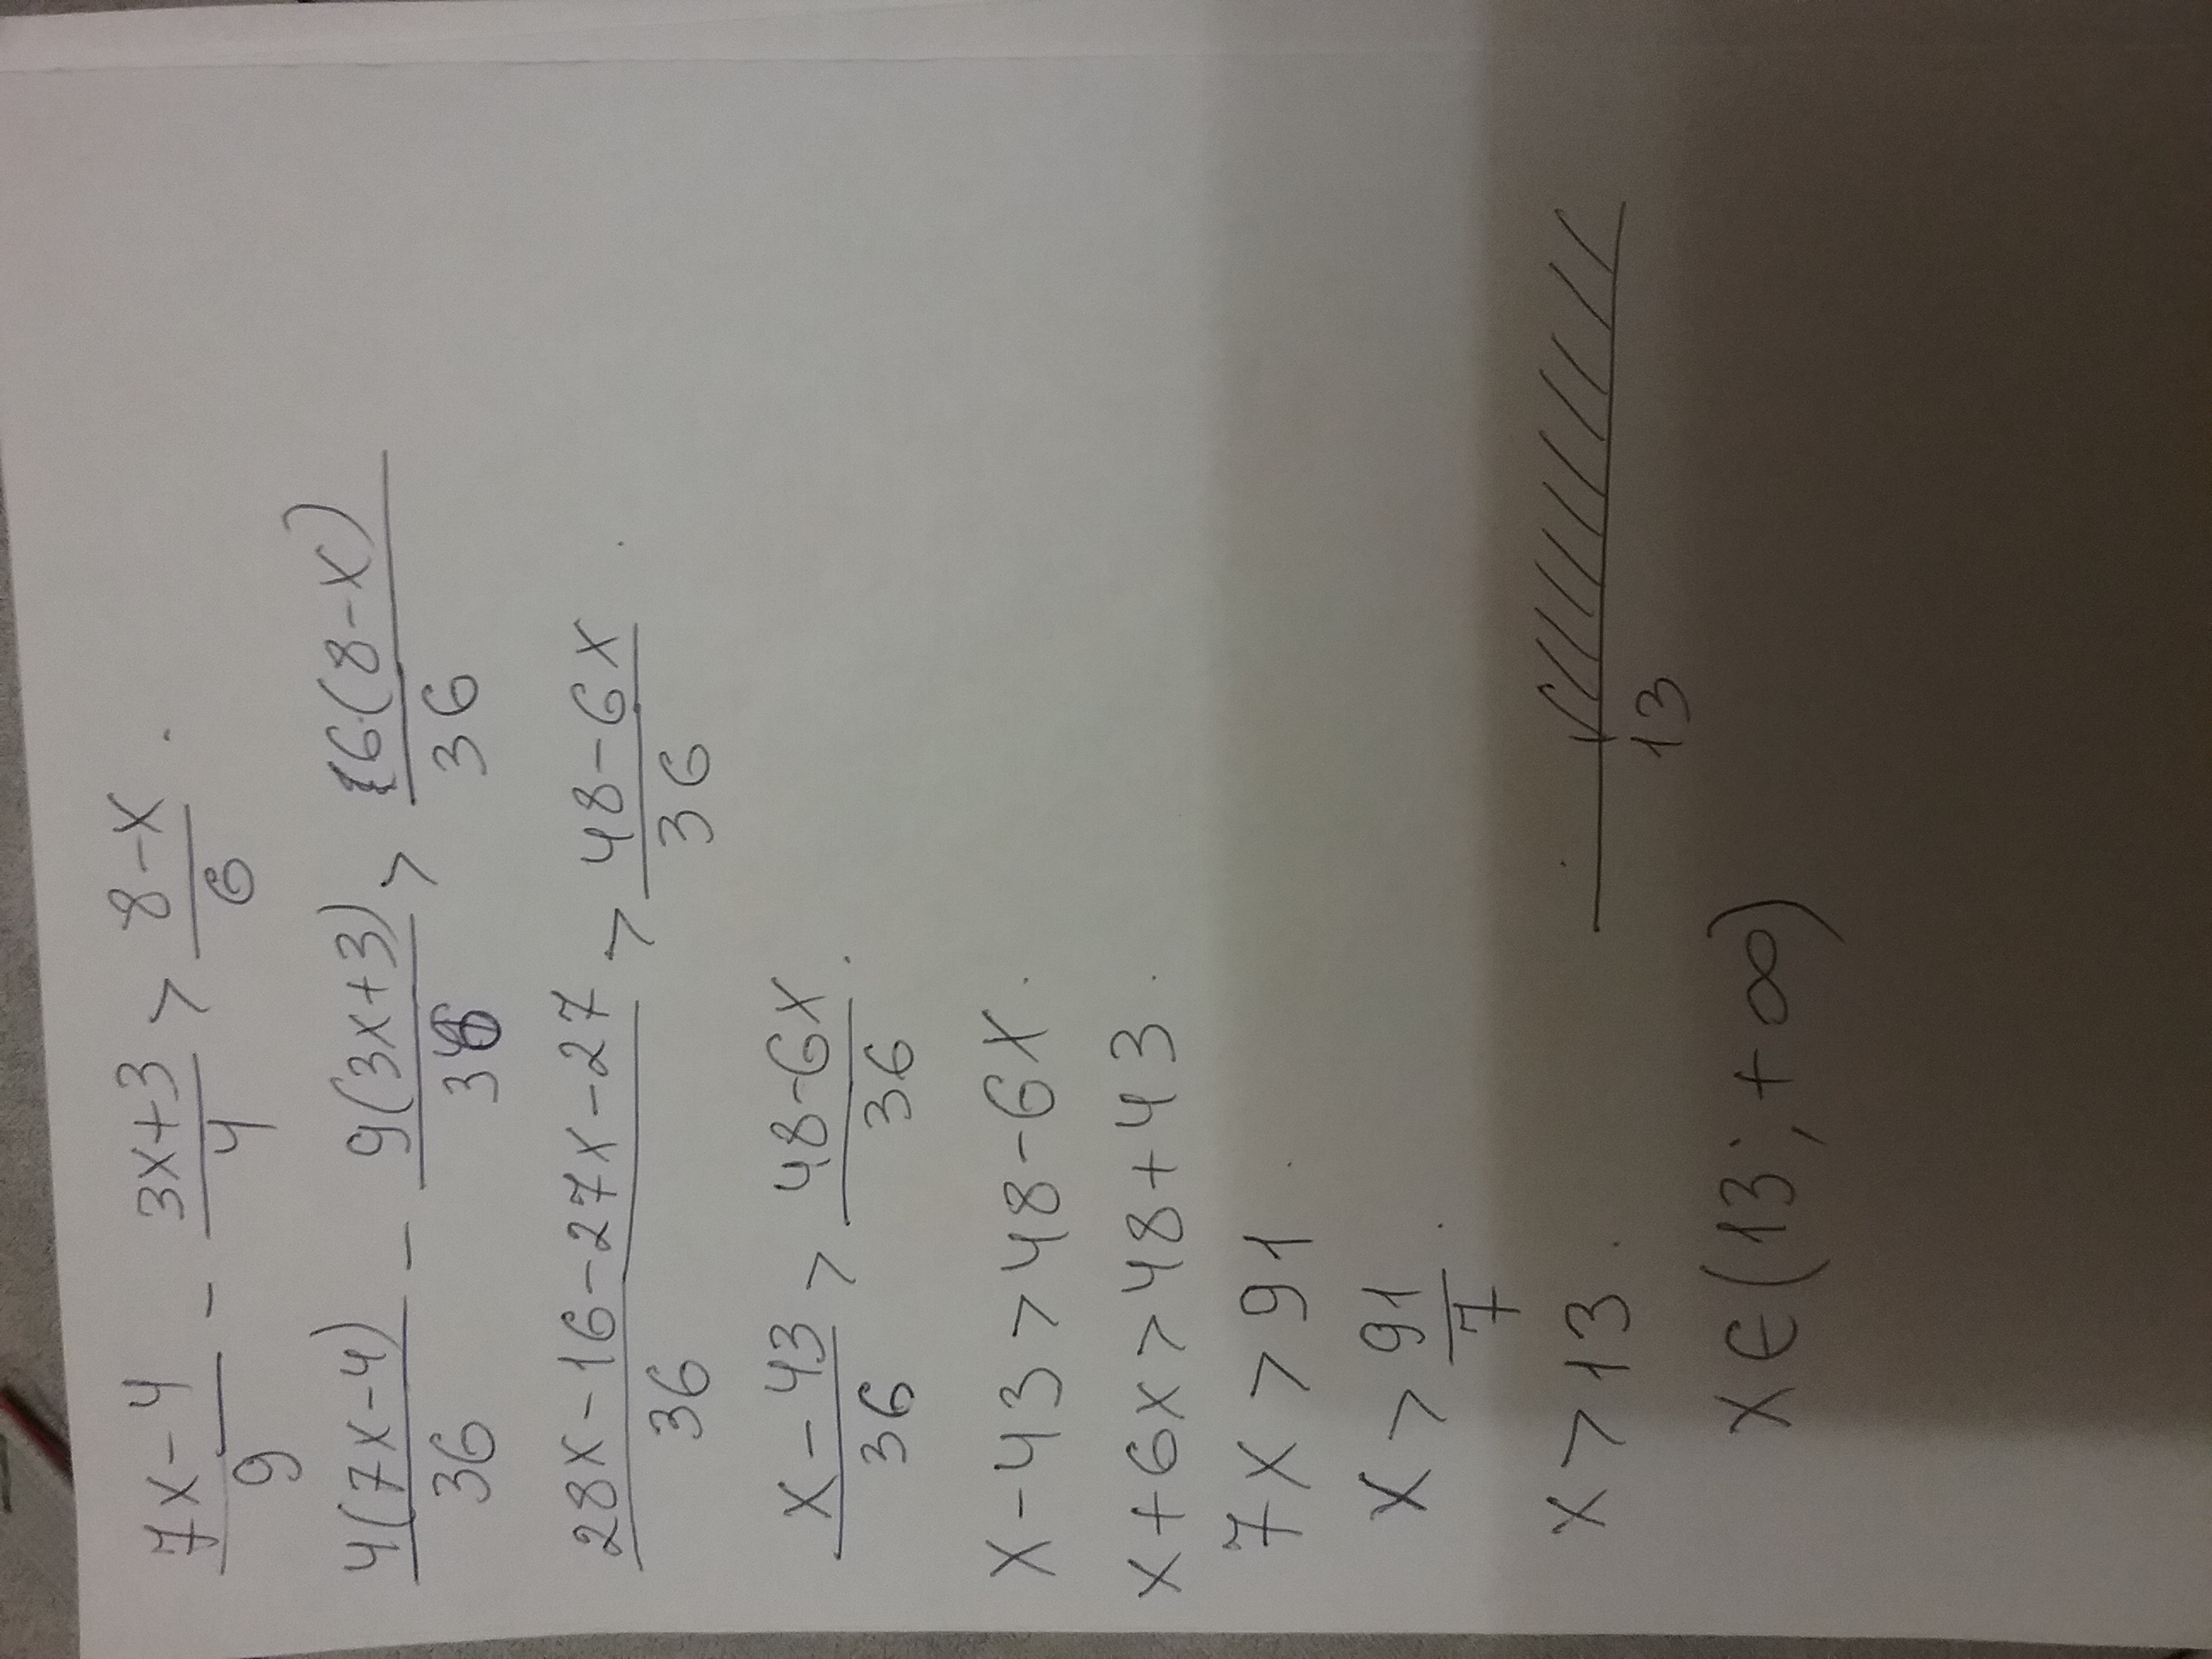 (7x-4)/9 - (3x+3)/4 > (8-x)/6.
4(7x-4)/36 - 9(3x+3)/36 > 6(8-x)/36
(28x-16-27x-27)/36 > (48-6x)/36.
(x-43)/36 > (48-6x)/36.
x-43 > 48-6x.
x+6x > 48+43.
7x > 91.
x > 91/7.
x > 13.
13
x ∈ (13; +∞)